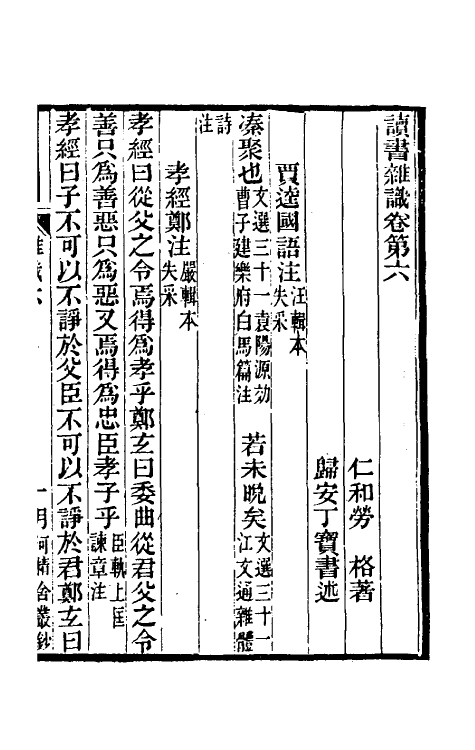 讀書雜識卷第六
仁和勞　格著
歸安丁寶書述
賈逵國語注汪輯本失采
湊聚也文選三十一袁陽源効曹子建樂府白馬篇注　若未晚矣文選三十一江文通雜體
詩注
孝經鄭注嚴輯本失采
孝經曰從父之令焉得爲孝乎鄭玄曰委曲從君父之令
善只爲善惡只爲惡又焉得爲忠臣孝子乎臣軌上匡諫章注
孝經曰子不可以不諍於父臣不可以不諍於君鄭玄曰
月河精舍叢鈔